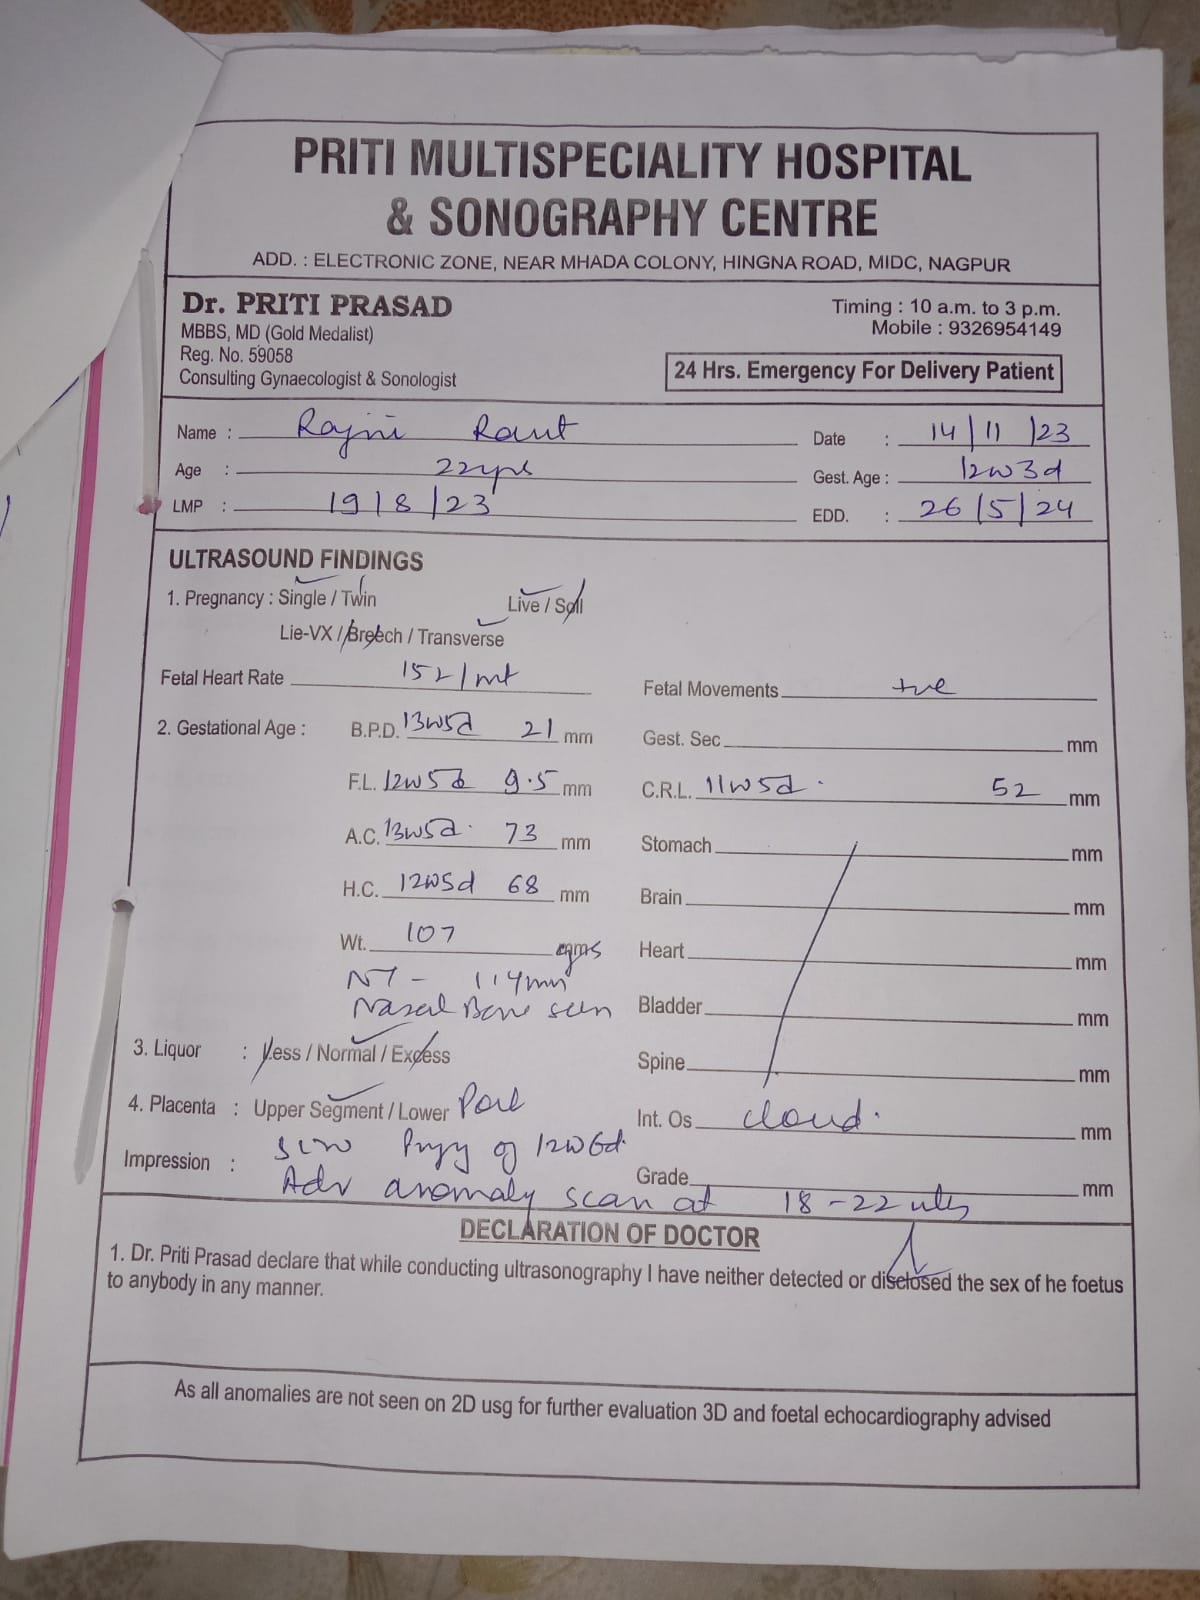 PRITI MULTISPECIALITY HOSPITAL
& SONOGRAPHY CENTRE
ADD. : ELECTRONIC ZONE, NEAR MHADA COLONY, HINGNA ROAD, MIDC, NAGPUR
Dr. PRITI PRASAD
MBBS, MD (Gold Medalist)
Reg. No. 59058
Consulting Gynaecologist & Sonologist
Timing : 10 a.m. to 3 p.m.
Mobile : 9326954149
24 Hrs. Emergency For Delivery Patient
Name : Rajni Raut
Date : 14/11/23
Age : 22yrs
Gest. Age : 12w3d
LMP : 19/8/23
EDD. : 26/5/24
ULTRASOUND FINDINGS
1. Pregnancy : Single / Twin Live / Soll
Lie-VX / Breech / Transverse
Fetal Heart Rate 152/mt
Fetal Movements +ve
2. Gestational Age : B.P.D. 13w5d 21 mm
Gest. Sec mm
F.L. 12w5d 9.5 mm
C.R.L. 11w5d. 52 mm
A.C. 13w5d. 73 mm
Stomach mm
H.C. 12w5d 68 mm
Brain mm
Wt. 107 gms
Heart mm
NT - 1.4mm
Nasal Bone seen
Bladder mm
3. Liquor : Less / Normal / Excess
Spine mm
4. Placenta : Upper Segment / Lower Post
Int. Os closed. mm
Impression : 12w6d.
Grade mm
Adv anomaly scan at 18-22 wks
DECLARATION OF DOCTOR
1. Dr. Priti Prasad declare that while conducting ultrasonography I have neither detected or disclosed the sex of he foetus
to anybody in any manner.
As all anomalies are not seen on 2D usg for further evaluation 3D and foetal echocardiography advised